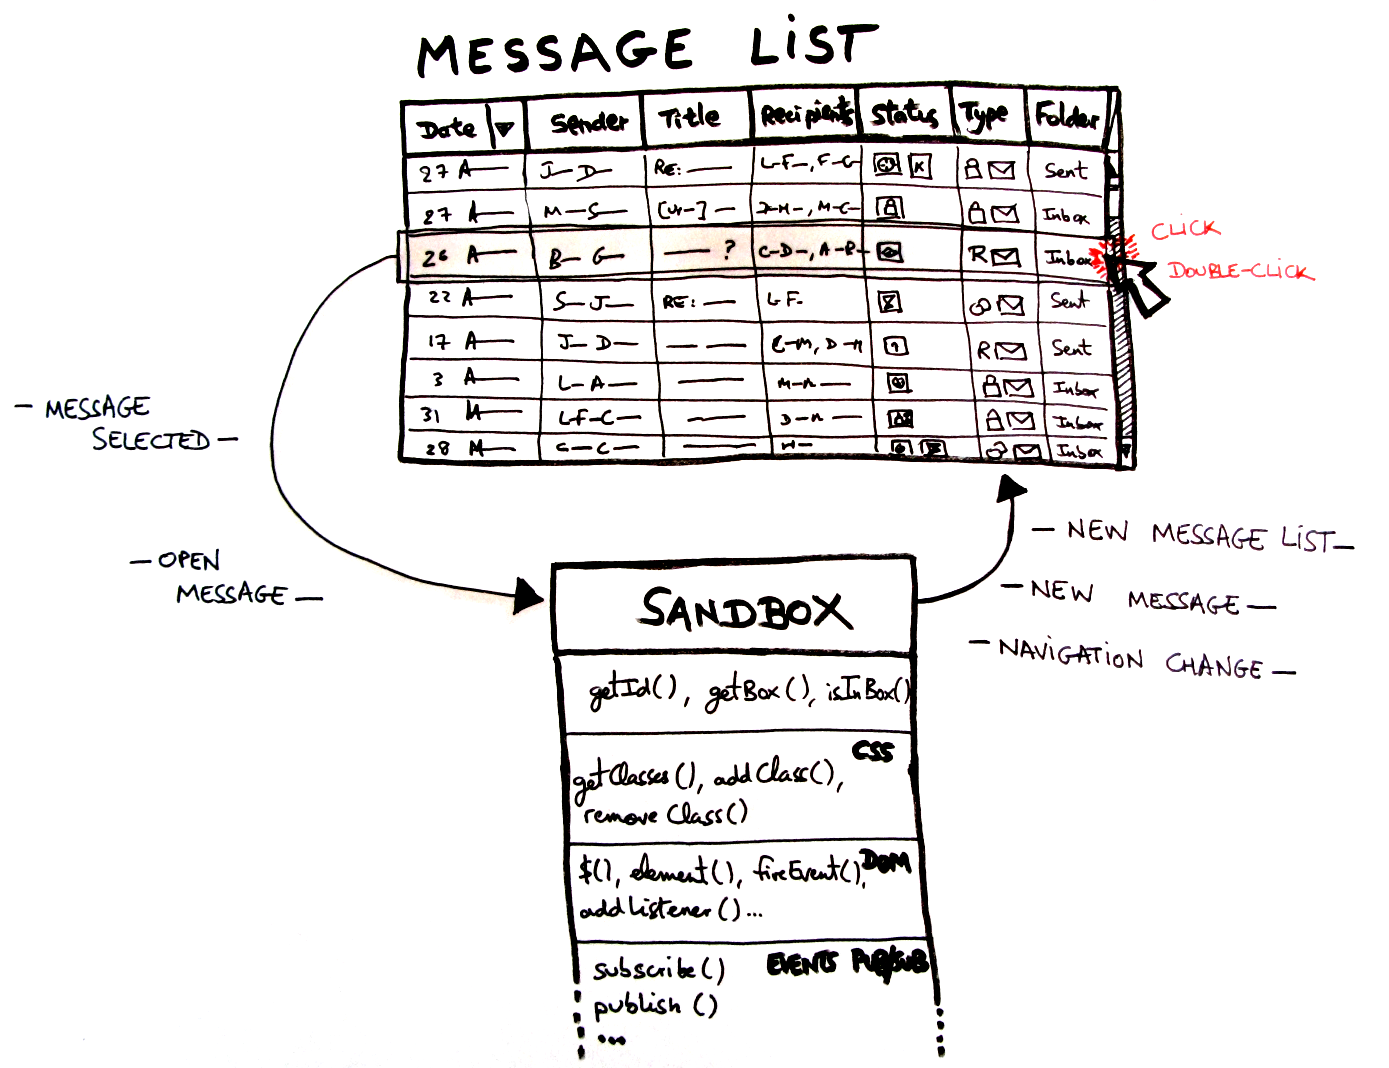 MESSAGE LIST
Date Sender Title Recipients Status Type Folder
27 A J D RE: L-F-, F-G K Sent
27 A M-S [Ur-] M-C- Inbox
26 A B G ? C-D-, A-R- R Inbox
CLICK
DOUBLE-CLICK
22 A S-J RE: L-F- Sent
17 A J-D ?-M, D-N R Sent
3 A L-A M-N Inbox
31 M L-F-C D-N Inbox
28 M C-C Inbox
- MESSAGE
SELECTED -
- OPEN
MESSAGE -
- NEW MESSAGE LIST -
- NEW MESSAGE -
- NAVIGATION CHANGE -
SANDBOX
getId(), getBox(), isInBox()
CSS
getClasses(), addClass(),
removeClass()
DOM
$(), element(), fireEvent(),
addListener()...
EVENTS PUB/SUB
subscribe()
publish()
...